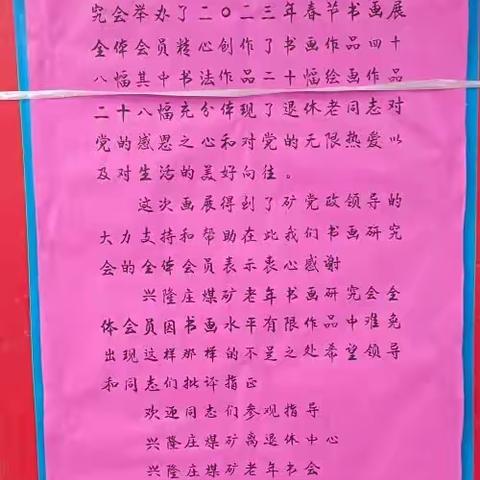 究会举办了二〇二三年春节书画展
全体会员精心创作了书画作品四十
八幅其中书法作品二十幅绘画作品
二十八幅充分体现了退休老同志对
党的感恩之心和对党的无限热爱以
及对生活的美好向往。
这次画展得到了矿党政领导的
大力支持和帮助在此我们书画研究
会的全体会员表示衷心感谢
兴隆庄煤矿老年书画研究会全
体会员因书画水平有限作品中难免
出现这样那样的不足之处希望领导
和同志们批评指正
欢迎同志们参观指导
兴隆庄煤矿离退休中心
兴隆庄煤矿老年书会